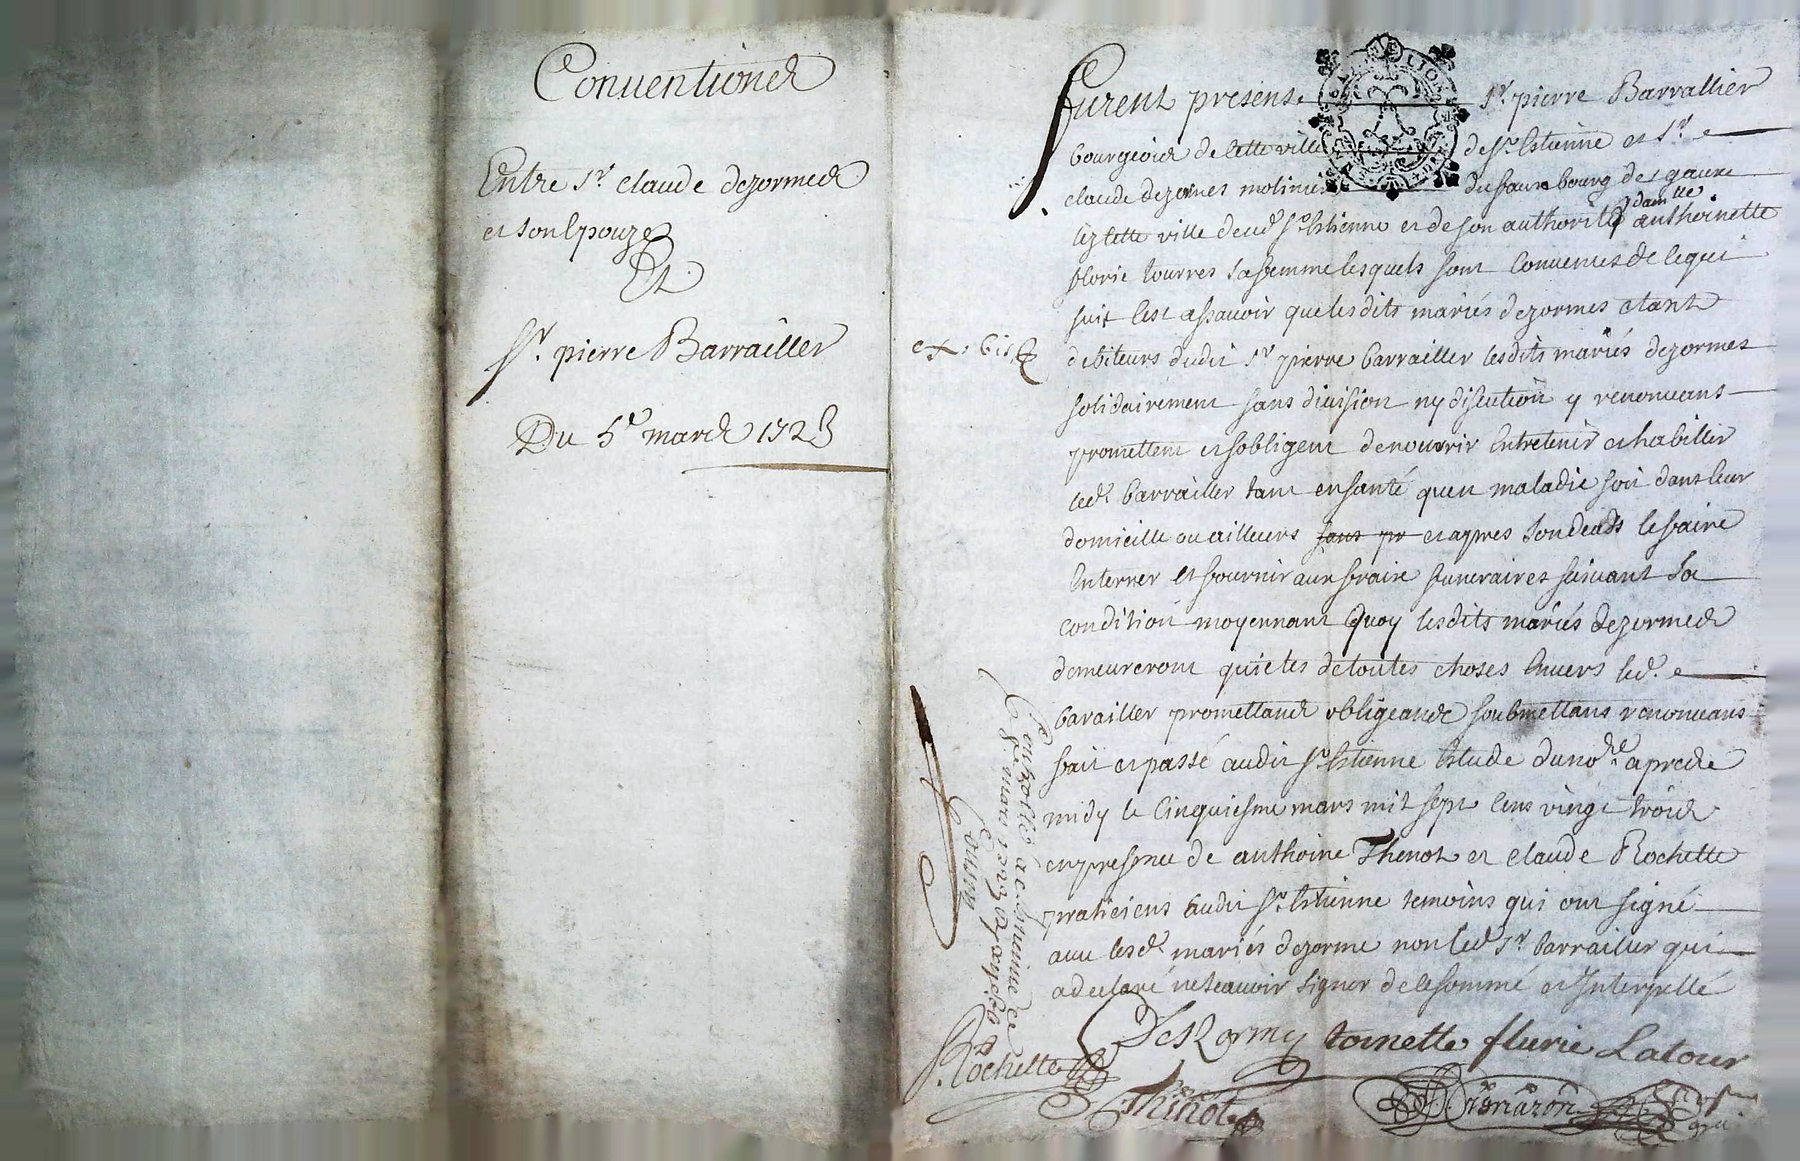 Conventions
Entre Sr claude dezormes
et son Epouze
Et
Sr. pierre Barrailler
Du 5e mars 1723
furent presens Sr. pierre Barrallier
bourgeois de cette ville de St Estienne et Sr.
claude dezormes molinier du faux bourg des gaux
lez cette ville dud. St Estienne et de son authorité dam.lle anthoinette
florie tourres sa femme lesquels sont convenus de ce qui
suit c'est assavoir que lesdits mariés dezormes etant
debiteurs dudit Sr pierre barrailler lesdits mariés dezormes
solidairement sans division ny discution y renonceans
promettent et sobligent de nourrir entretenir et habiller
led. barrailler tant en santé quen maladie soit dans leur
domicille ou ailleurs sans pr et apres son deceds le faire
enterrer et fournir aux fraix funeraires suivant sa
condition moyennant quoy lesdits mariés dezormes
demeureront quictes de toutes choses envers led.
barailler promettans obligeans soubmettans renonceans
fait et passé audit St Estienne estude du no.re apres
midy le cinquiesme mars mil sept cens vingt trois
en presence de anthoine Thenot et claude Rochette
praticiens audit St Estienne temoins qui ont signé
avec lesd. mariés dezorme non led Sr barrailler qui
a declaré ne scavoir signer de ce sommé et Interpellé
DesZormes toinette flurie Latour
Rochette
Thenot
ex: bis
Controllé a St Estienne le
8e mars 1723